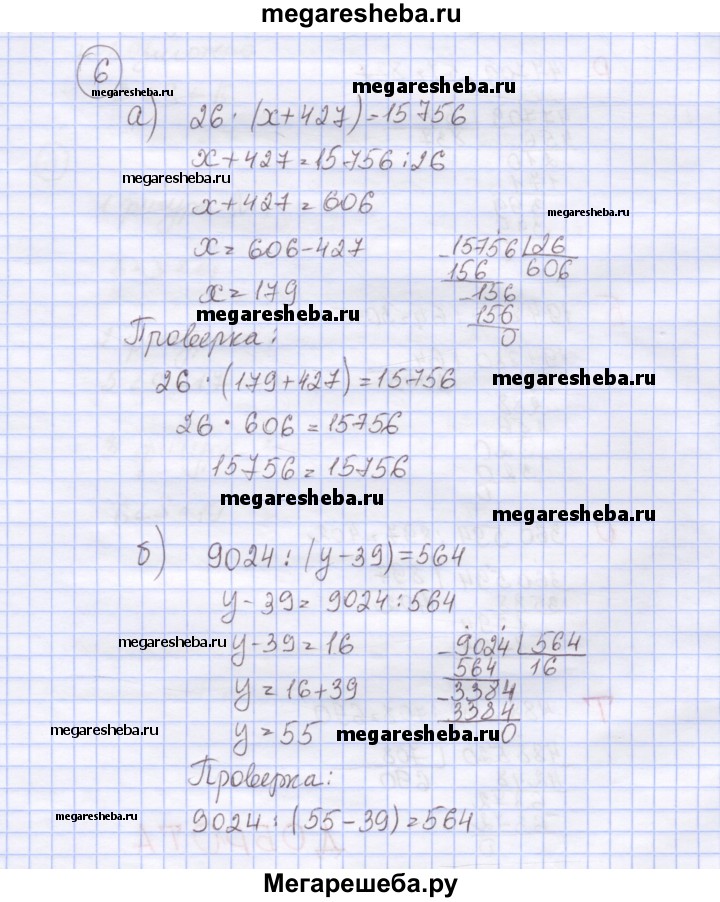 megaresheba.ru
6
megaresheba.ru
megaresheba.ru
а) 26 · (x+427)=15756
x+427=15756:26
megaresheba.ru
x+427=606
megaresheba.ru
x=606-427
15756 26
156 606
x=179
156
156
0
megaresheba.ru
Проверка:
26 · (179+427)=15756
megaresheba.ru
26 · 606=15756
15756=15756
megaresheba.ru
megaresheba.ru
б) 9024:(y-39)=564
y-39=9024:564
megaresheba.ru
y-39=16
9024 564
564 16
y=16+39
3384
3384
0
megaresheba.ru
y=55
megaresheba.ru
Проверка:
megaresheba.ru
9024:(55-39)=564
Мегарешеба.ру